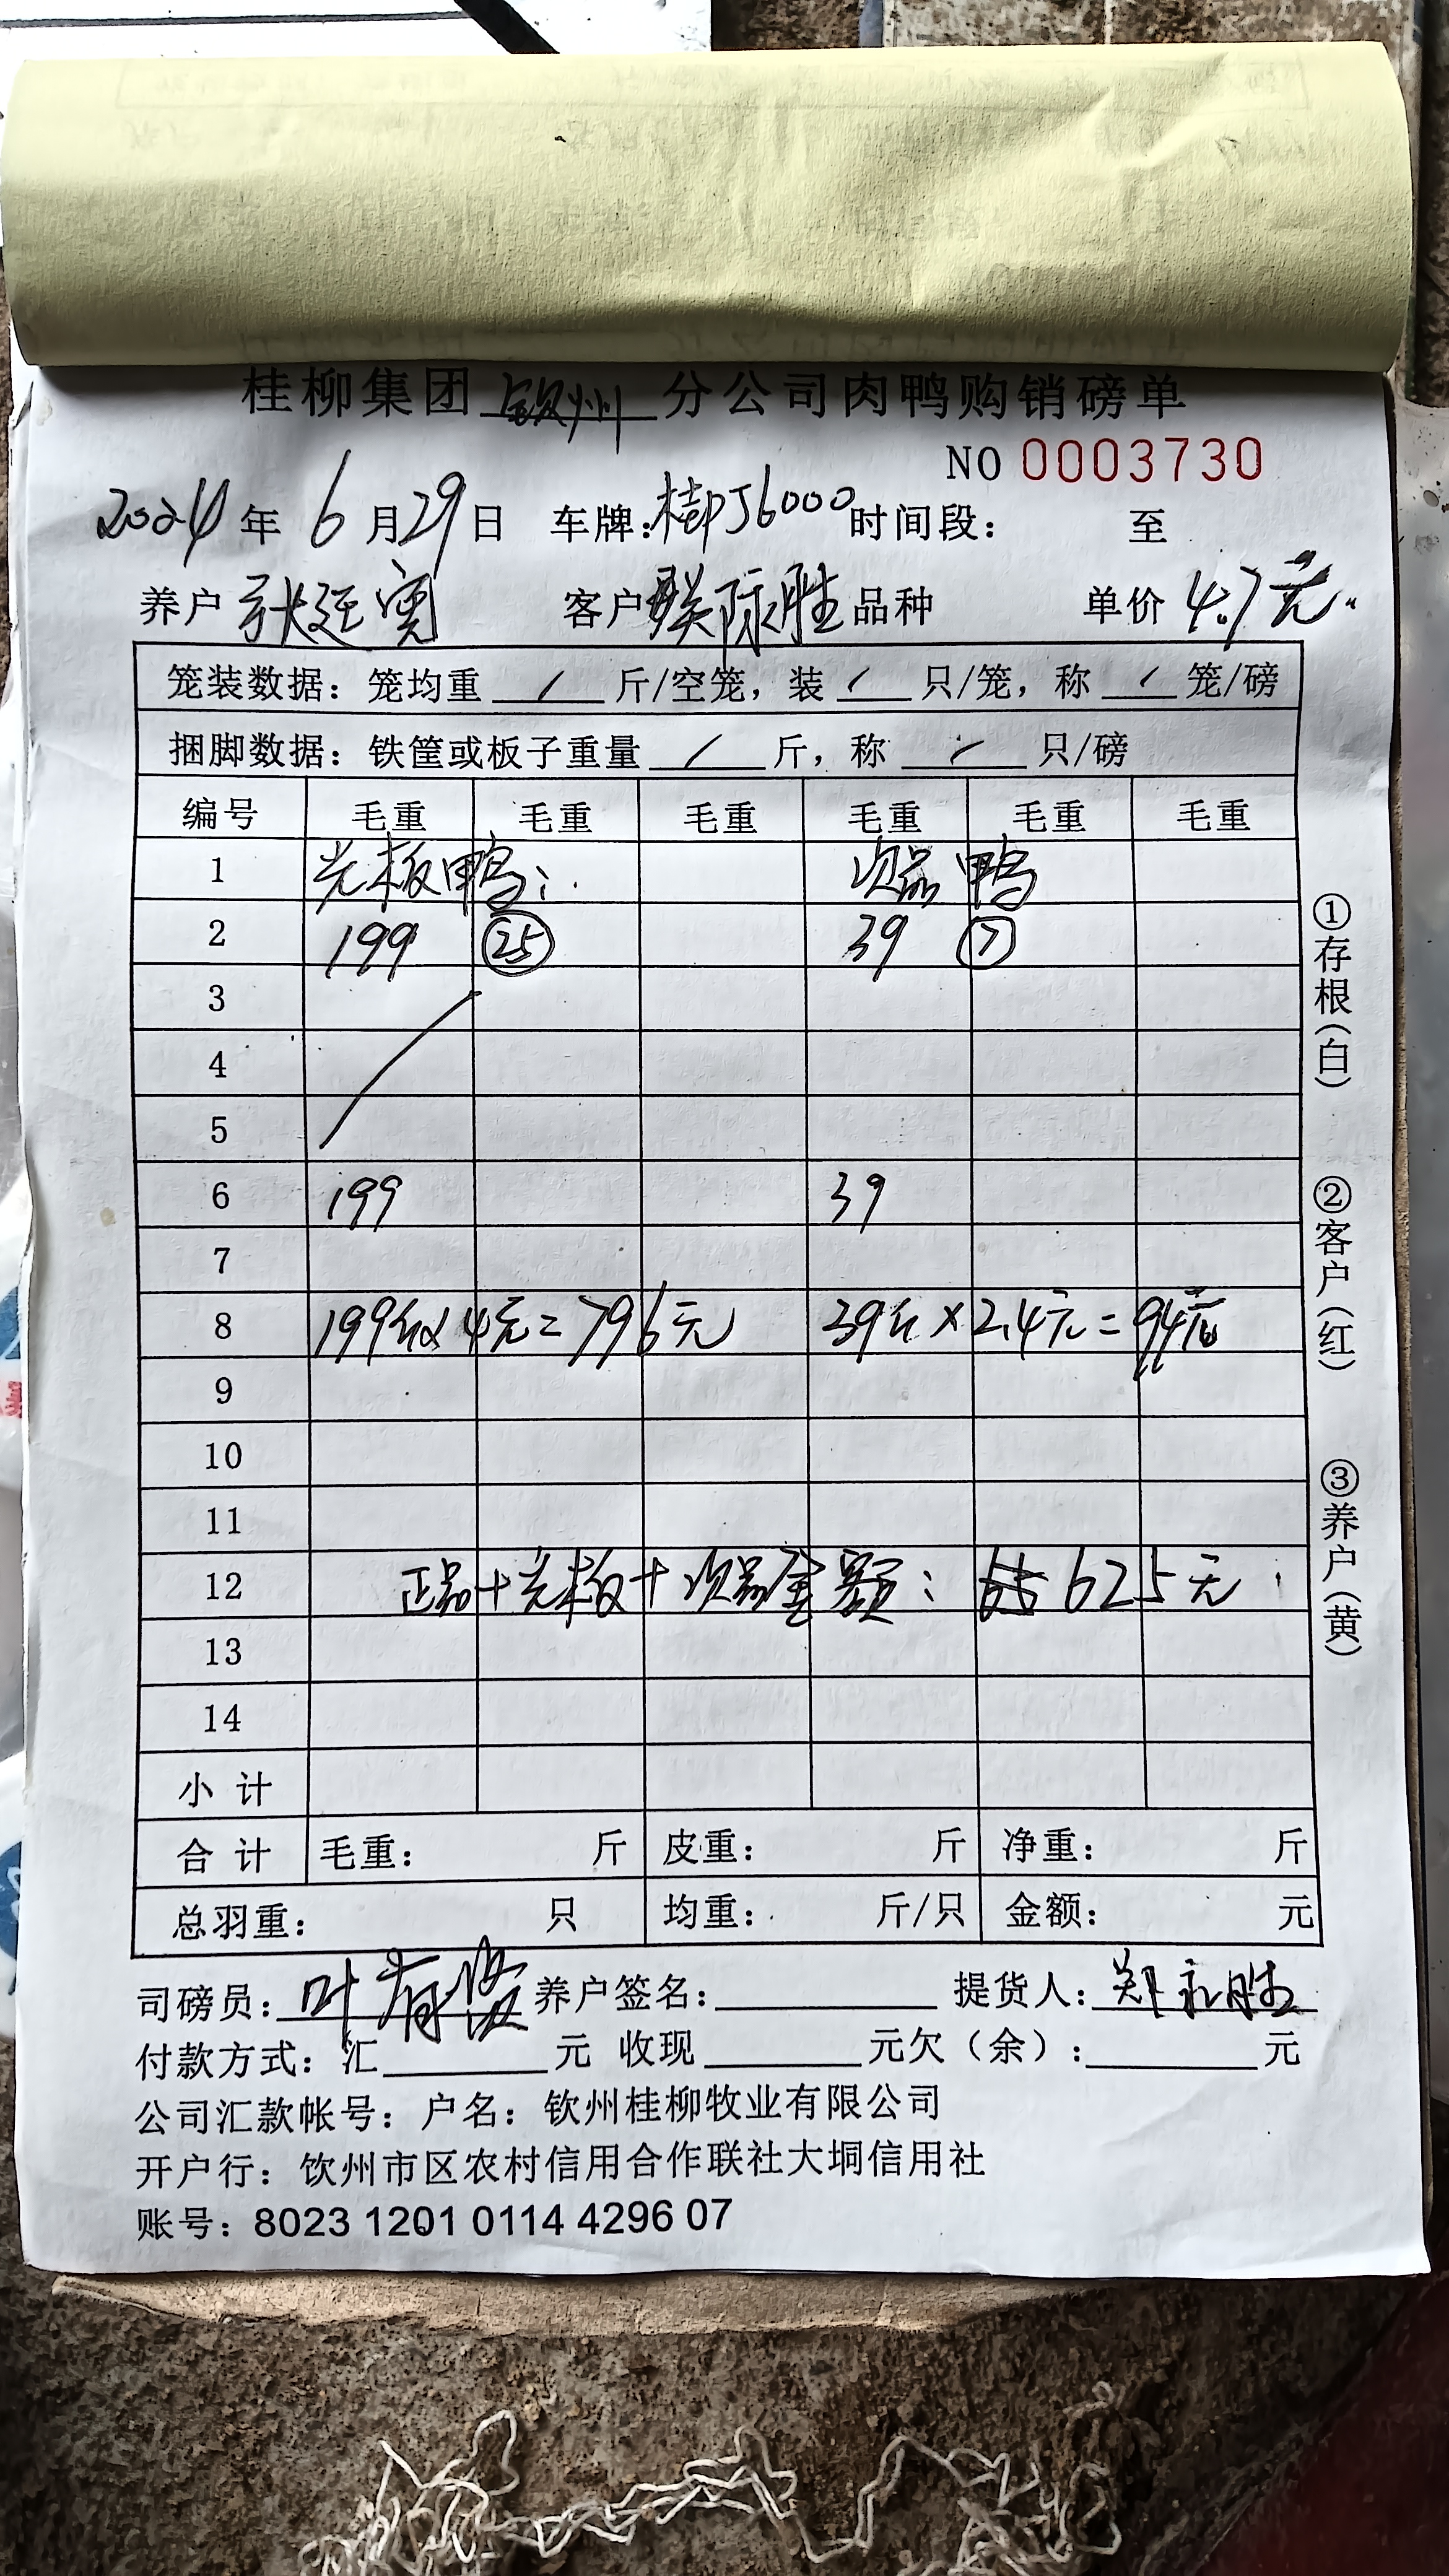 桂柳集团 钦州 分公司肉鸭购销磅单
NO 0003730
2024 年 6 月 29 日 车牌: 桂PJ6000 时间段: 至
养户 客户 品种 单价 4.7元
笼装数据: 笼均重 / 斤/空笼, 装 / 只/笼, 称 / 笼/磅
捆脚数据: 铁筐或板子重量 / 斤, 称 / 只/磅
编号 毛重 毛重 毛重 毛重 毛重 毛重
1 光板鸭: 次品鸭
2 199 25 39 7
3
4
5
6 199 39
7
8 199斤×4元=796元 39斤×2.4元=94元
9
10
11
12 正品+光板+次品金额: 625元
13
14
小计
合计 毛重: 斤 皮重: 斤 净重: 斤
总羽重: 只 均重: 斤/只 金额: 元
司磅员: 叶 养户签名: 提货人: 郑永胜
付款方式: 汇 元 收现 元欠(余): 元
公司汇款帐号: 户名: 钦州桂柳牧业有限公司
开户行: 钦州市区农村信用合作联社大垌信用社
账号: 8023 1201 0114 4296 07
①存根(白)
②客户(红)
③养户(黄)